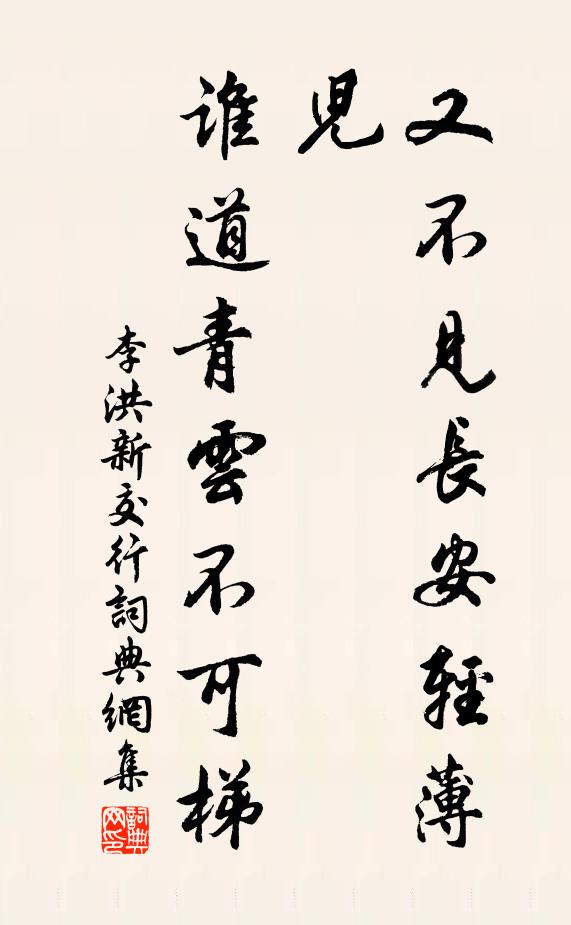 又不見長安輕薄
兒
誰道青雲不可梯
李洪新交行詞典網集
詞典網印